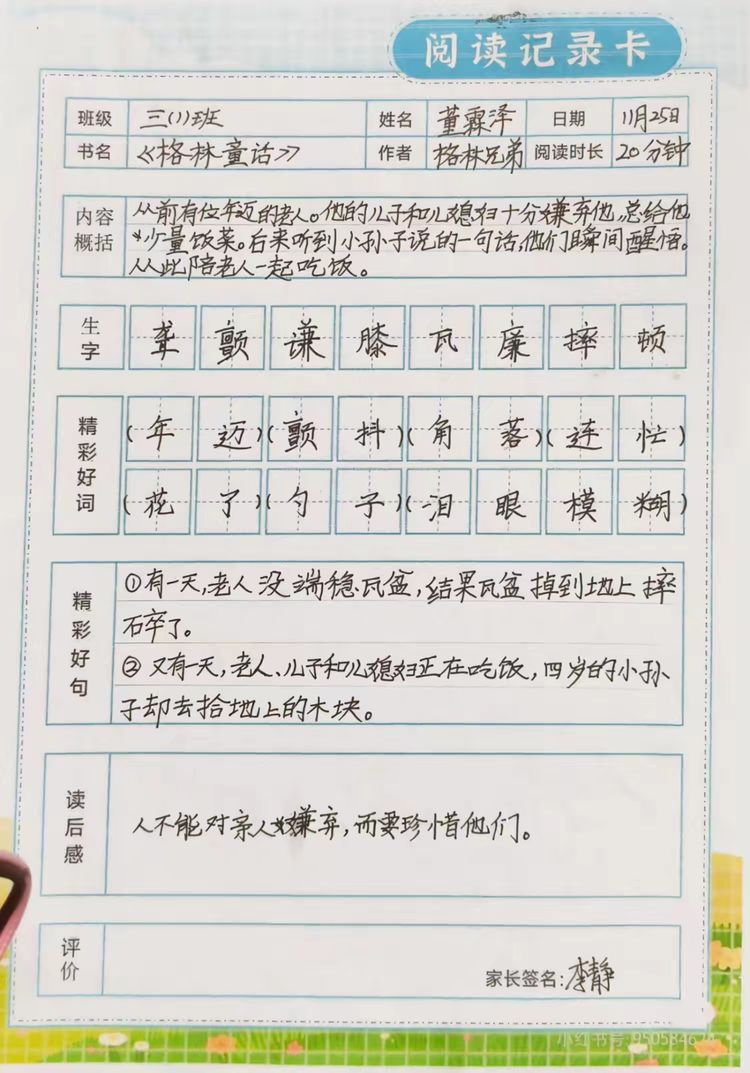 阅读记录卡
班级 三(1)班 姓名 董霖泽 日期 11月25日
书名 《格林童话》 作者 格林兄弟 阅读时长 20分钟
内容概括
从前有位年迈的老人。他的儿子和儿媳妇十分嫌弃他,总给他
少量饭菜。后来听到小孙子说的一句话,他们瞬间醒悟。
从此陪老人一起吃饭。
生字
聋 颤 谦 膝 瓦 廉 摔 顿
精彩好词
(年迈)(颤抖)(角落)(连忙)
(花了)(勺子)(泪眼模糊)
精彩好句
①有一天,老人没端稳瓦盆,结果瓦盆掉到地上摔
碎了。
②又有一天,老人、儿子和儿媳妇正在吃饭,四岁的小孙
子却去拾地上的木块。
读后感
人不能对亲人嫌弃,而要珍惜他们。
评价
家长签名:李静
小红书号:95058467